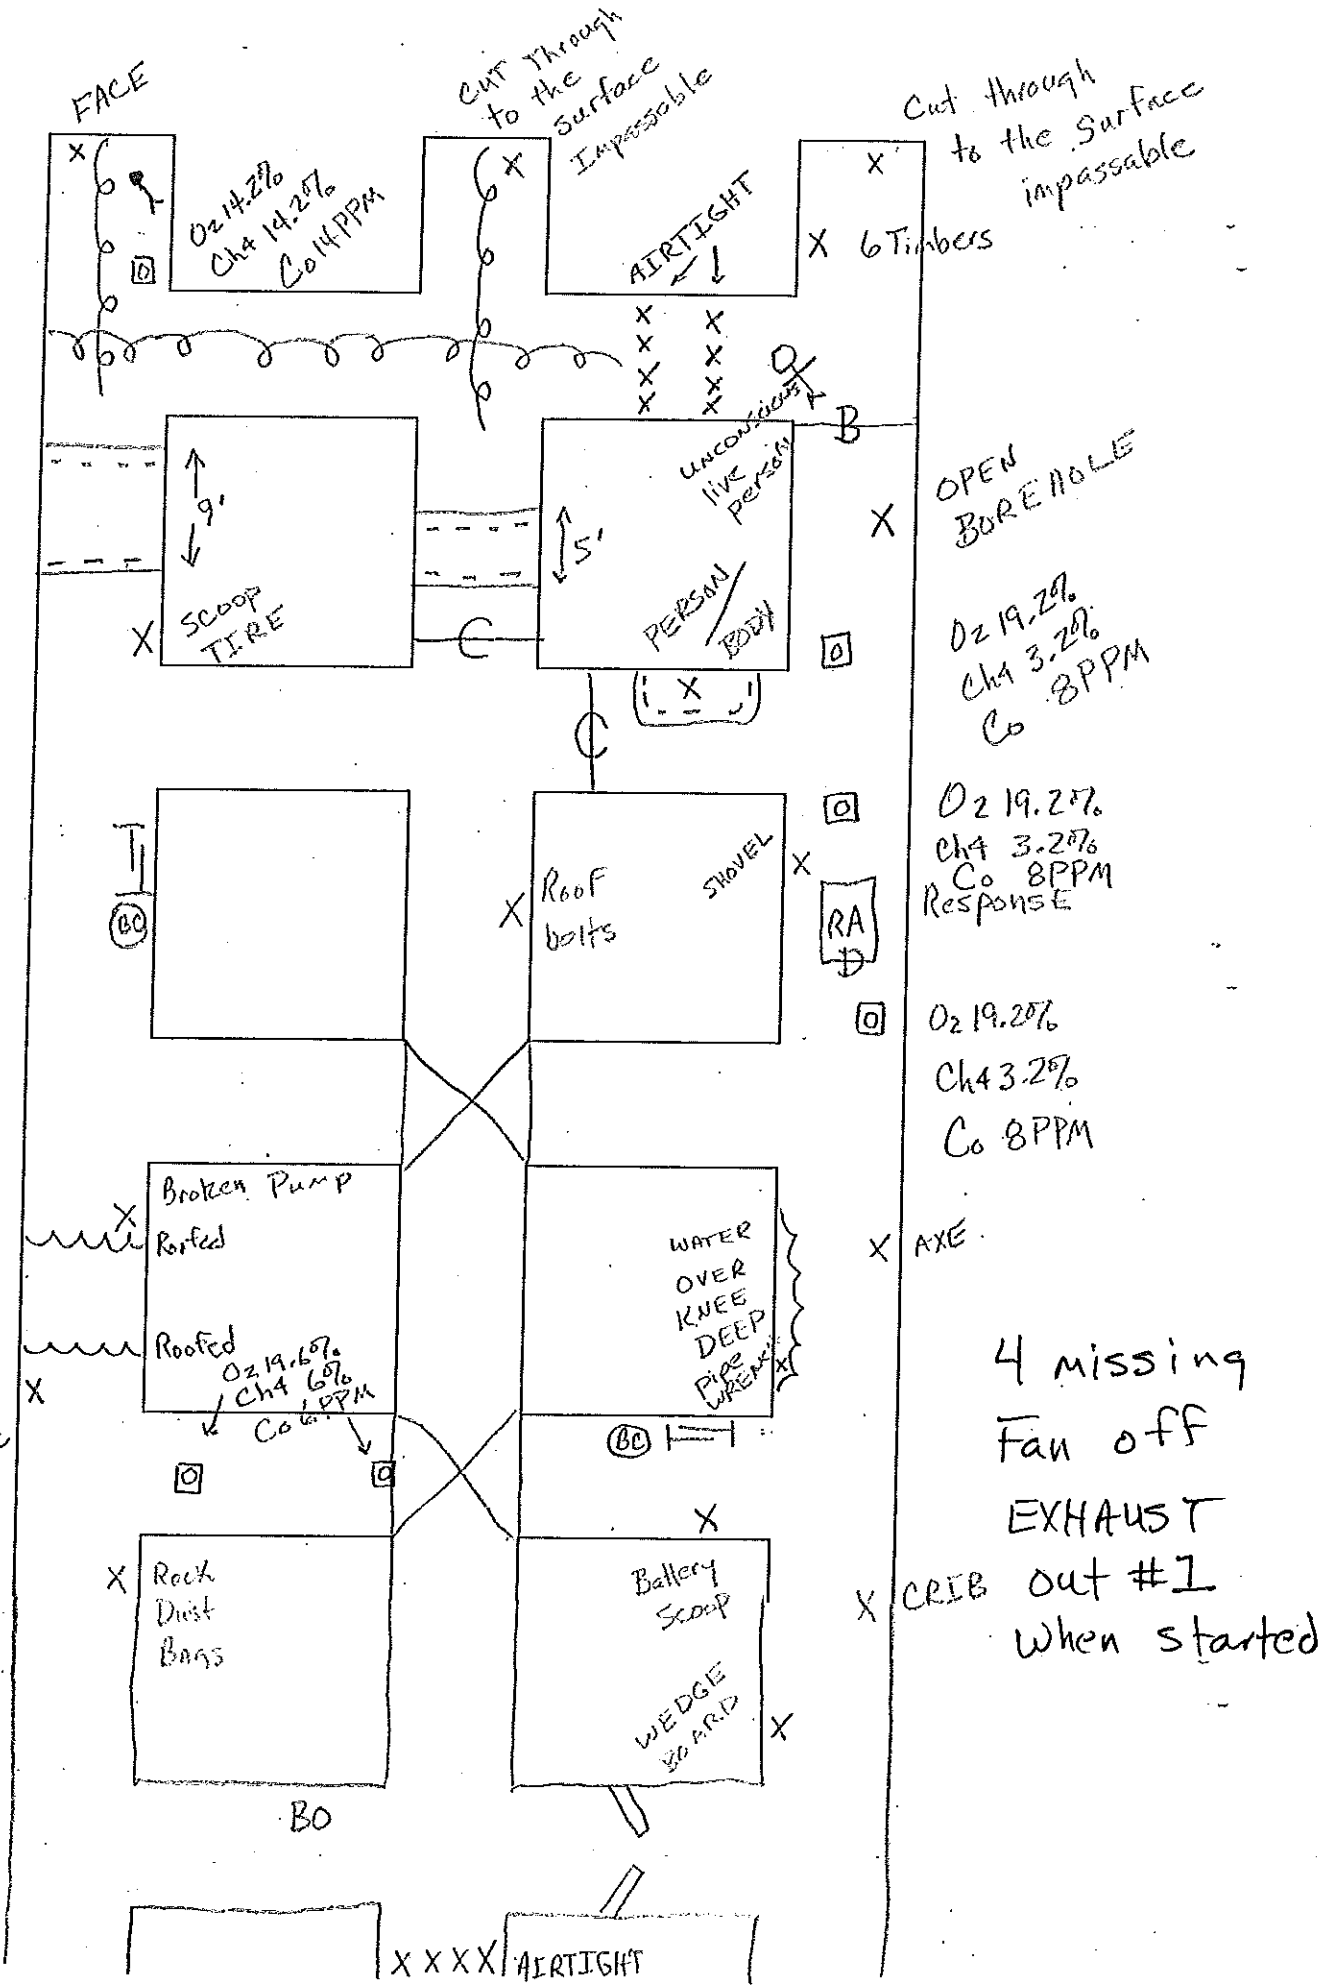 FACE
Cut Through
to the
surface
Impassable
Cut through
to the Surface
impassable
O2 14.2%
Ch4 14.2%
Co 14PPM
AIRTIGHT
X 6 Timbers
UNCONSCIOUS
live
person
B
OPEN
BOREHOLE
9'
5'
SCOOP
TIRE
C
PERSON/
BODY
O2 19.2%
Ch4 3.2%
Co 8PPM
C
O2 19.2%
Ch4 3.2%
Co 8PPM
Response
BC
Roof
bolts
SHOVEL
RA
D
O2 19.2%
Ch4 3.2%
Co 8PPM
Broken Pump
Roofed
WATER
OVER
KNEE
DEEP
Pipe
WRENCH
X AXE
Roofed
O2 19.6%
Ch4 6%
Co 6PPM
BC
4 missing
Fan off
EXHAUST
out #1
When started
X Rock
Dust
Bags
Battery
Scoop
X CRIB
WEDGE
BOARD
BO
X X X X AIRTIGHT